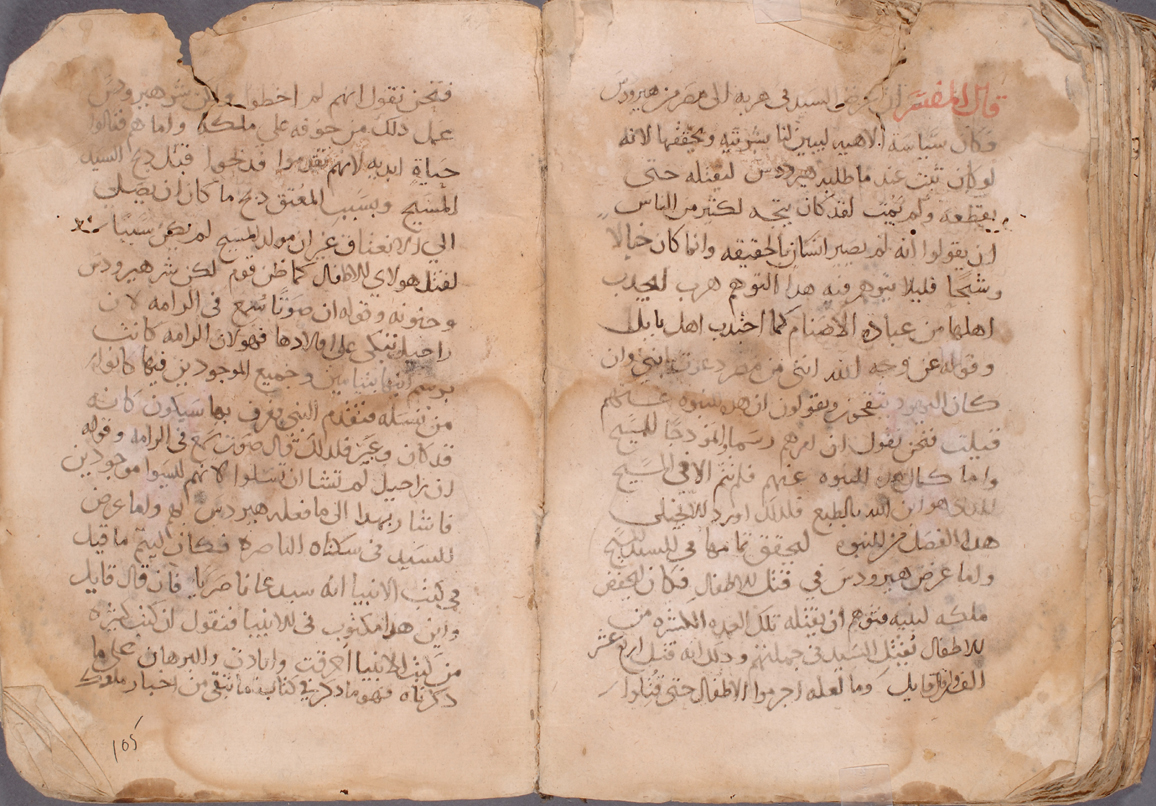 قال المفسر ان غرض السيد في هربه الى مصر من هيرودس
فكان سياسه الاهيه ليبين لنا بشريته ويحققها لانه
لو كان ثبت عند ما طلبه هيرودس ليقتله حتى
يقطعه ولم يمت لقد كان يتجه لكثير من الناس
ان يقولوا انه لم يصير انسانا بالحقيقه وانما كان خيالا
وشبحا فليلا يتوهم فيه هدا التوهم هرب ليجدب
اهلها من عباده الاصنام كما اجتدب اهل بابل
وقوله عن وجه الله انني من مصر دعوت ابني وان
كان اليهود ويقولون ان هده النبوه عليهم
قيلت فنحن نقول ان امرهم رسما ونمودجا للمسيح
واما كمال هده النبوه عنهم فلم تتم الا في المسيح
الدي هو ابن الله بالطبع فلدلك اورد الانجيلي
هدا الفصل من النبوه ليحقق تمامها في السيد المسيح
واما غرض هيرودس في قتل الاطفال فكان لحفض
ملكه لبنيه فتوهم ان بقتله تلك العده الكثيره من
الاطفال يقتل السيد في جملتهم ودلك انه قتل اربع عشر
الف قايل وما لعله اجرموا الاطفال حتى قتلوا
فنحن نقول انهم لم اخطوا شر هيرودس
عمل دلك من خوفه على ملكه واما هم فنالوا
حياه ابديه لانهم تقدموا فدبحوا قبل دبح السيد
المسيح وبسبب المعتق دبح ما كان ان يصلى
الي الانعتاق غير ان مولد المسيح لم يكن سببا
لقتل هولاي الاطفال كما ظن قوم لكن شر هيرودس
وجنونه وقوله ان صوتا سمع في الرامه لان
راحيل تبكي على اولادها فهولان الرامه كانت
برسم ابنها بنيامين وجميع الموجودين فيها كانوا
من نسله فتقدم النبي يعرف بما سيكون كانه
قد كان وعبر فلدلك قال صوت سمع في الرامه وقوله
ان راحيل لم تشا ان تسلوا لانهم ليسوا موجودين
فاشار بهدا الى ما فعله هيردس بهم واما غرض
السيد في سكناه الناصره فكان ليتم ما قيل
في كتب الانبيا انه سيدعا ناصريا فان قال قايل
واين هدا مكتوب في الانبيا فنقول ان كتب كثيره
من كتب الانبيا احرقت وابادت والبرهان على ما
دكرناه فهو ما دكر في كتاب ما تبقى من اخبار ملوك
105